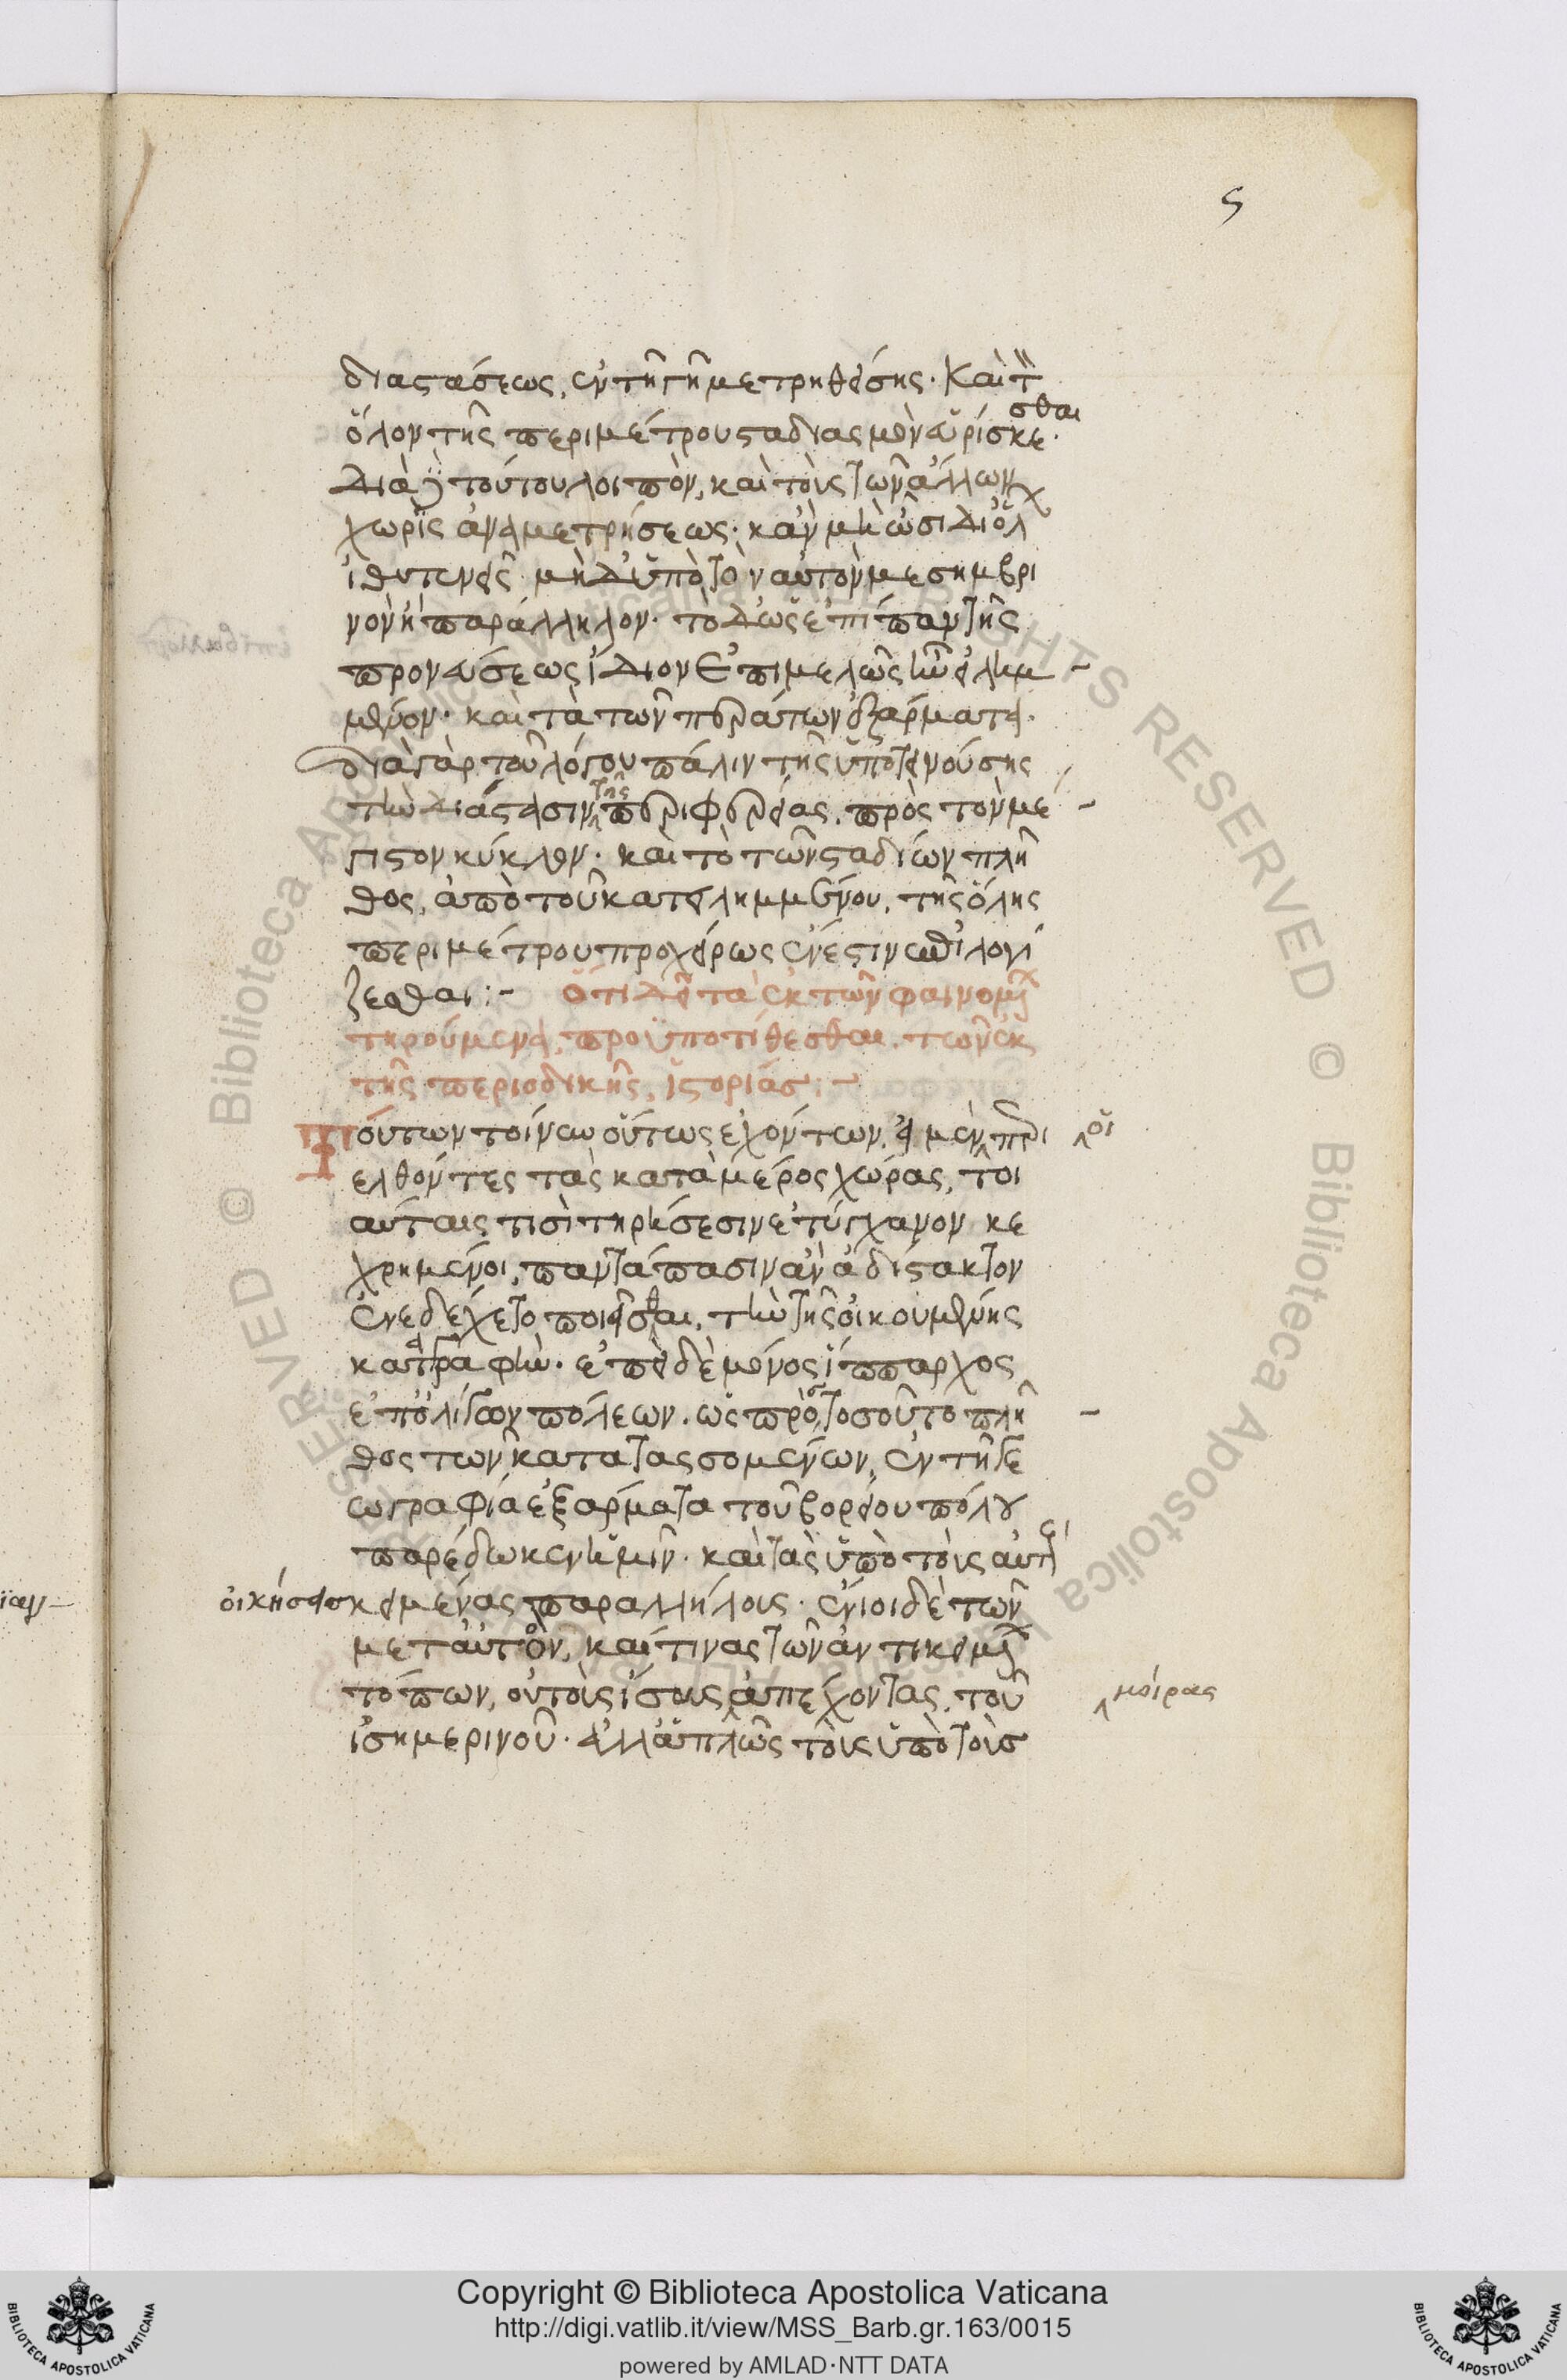 ς
διαστάσεως, ἐν τῆ γῆ μετρηθείσης. Καὶ τ
ὅλον τῆς περιμέτρου σταδίας μὲν εὑρίσκεσθαι.
Διὰ τούτου λοιπὸν, καὶ τοὺς τῶν ἄλλων
χωρὶς ἀναμετρήσεως. κἂν μὴ ὦσι δι' ὅλ
ἰθυτενεῖς. μὴ δ' ὑπὸ τὸν αὐτὸν μεσημβρι
νὸν ἢ παράλληλον. τὸ δ' ὡς ἐπίπαν τῆς
προνεύσεως ἴδιον ἐπιμελῶς ἦν εἰλημ
μένον. καὶ τὰ τῶν περάτων ἐξάρματα.
διὰ γὰρ τοῦ λόγου πάλιν τῆς ὑποτεινούσης
τὴν διάστασιν τῆς περιφερείας, πρὸς τὸν μέ
γιστον κύκλον. καὶ τὸ τῶν σταδίων πλῆ
θος, ἀπὸ τοῦ κατειλημμένου, τῆς ὅλης
περιμέτρου προχείρως ἔνεστιν ἐπιλογί
ζεσθαι :-   Ὅτι δεῖ τὰ ἐκ τῶν φαινομέ
τηρούμενα, προϋποτίθεσθαι. τῶν ἐκ
τῆς περιοδικῆς, ἱστορίας :-
Τούτων τοίνυν οὕτως ἐχόντων, εἰ μὲν περι οἱ
ελθόντες τὰς κατὰ μέρος χώρας, τοι
αύταις τισὶ τηρήσεσιν ἐτύγχανον κε
χρημένοι, παντάπασιν ἂν ἀδίστακτον
ἐνεδέχετο ποιεῖσθαι, τὴν τῆς οἰκουμένης
καταγραφὴν. ἐπεὶ δὲ μόνος ἵππαρχος
ἐπ' ὀλίγων πόλεων. ὡς πρὸς τοσοῦτο πλῆ
θος τῶν κατατασσομένων, ἐν τῆ γε
ωγραφία ἐξάρματα τοῦ βορείου πόλου
παρέδωκεν ἡμῖν. καὶ τὰς ὑπὸ τοὺς αὐτ
οἰκήσεις κειμένας παραλλήλους. ἔνιοι δὲ τῶν
μετ' αὐτὸν, καί τινας τῶν ἀντικειμέ
τόπων, οὐ τοὺς ἴσους ἀπέχοντας, τοῦ μοίρας
ἰσημερινοῦ. ἀλλ' ἁπλῶς τοὺς ὑπὸ τοὺς
Copyright © Biblioteca Apostolica Vaticana
http://digi.vatlib.it/view/MSS_Barb.gr.163/0015
powered by AMLAD·NTT DATA